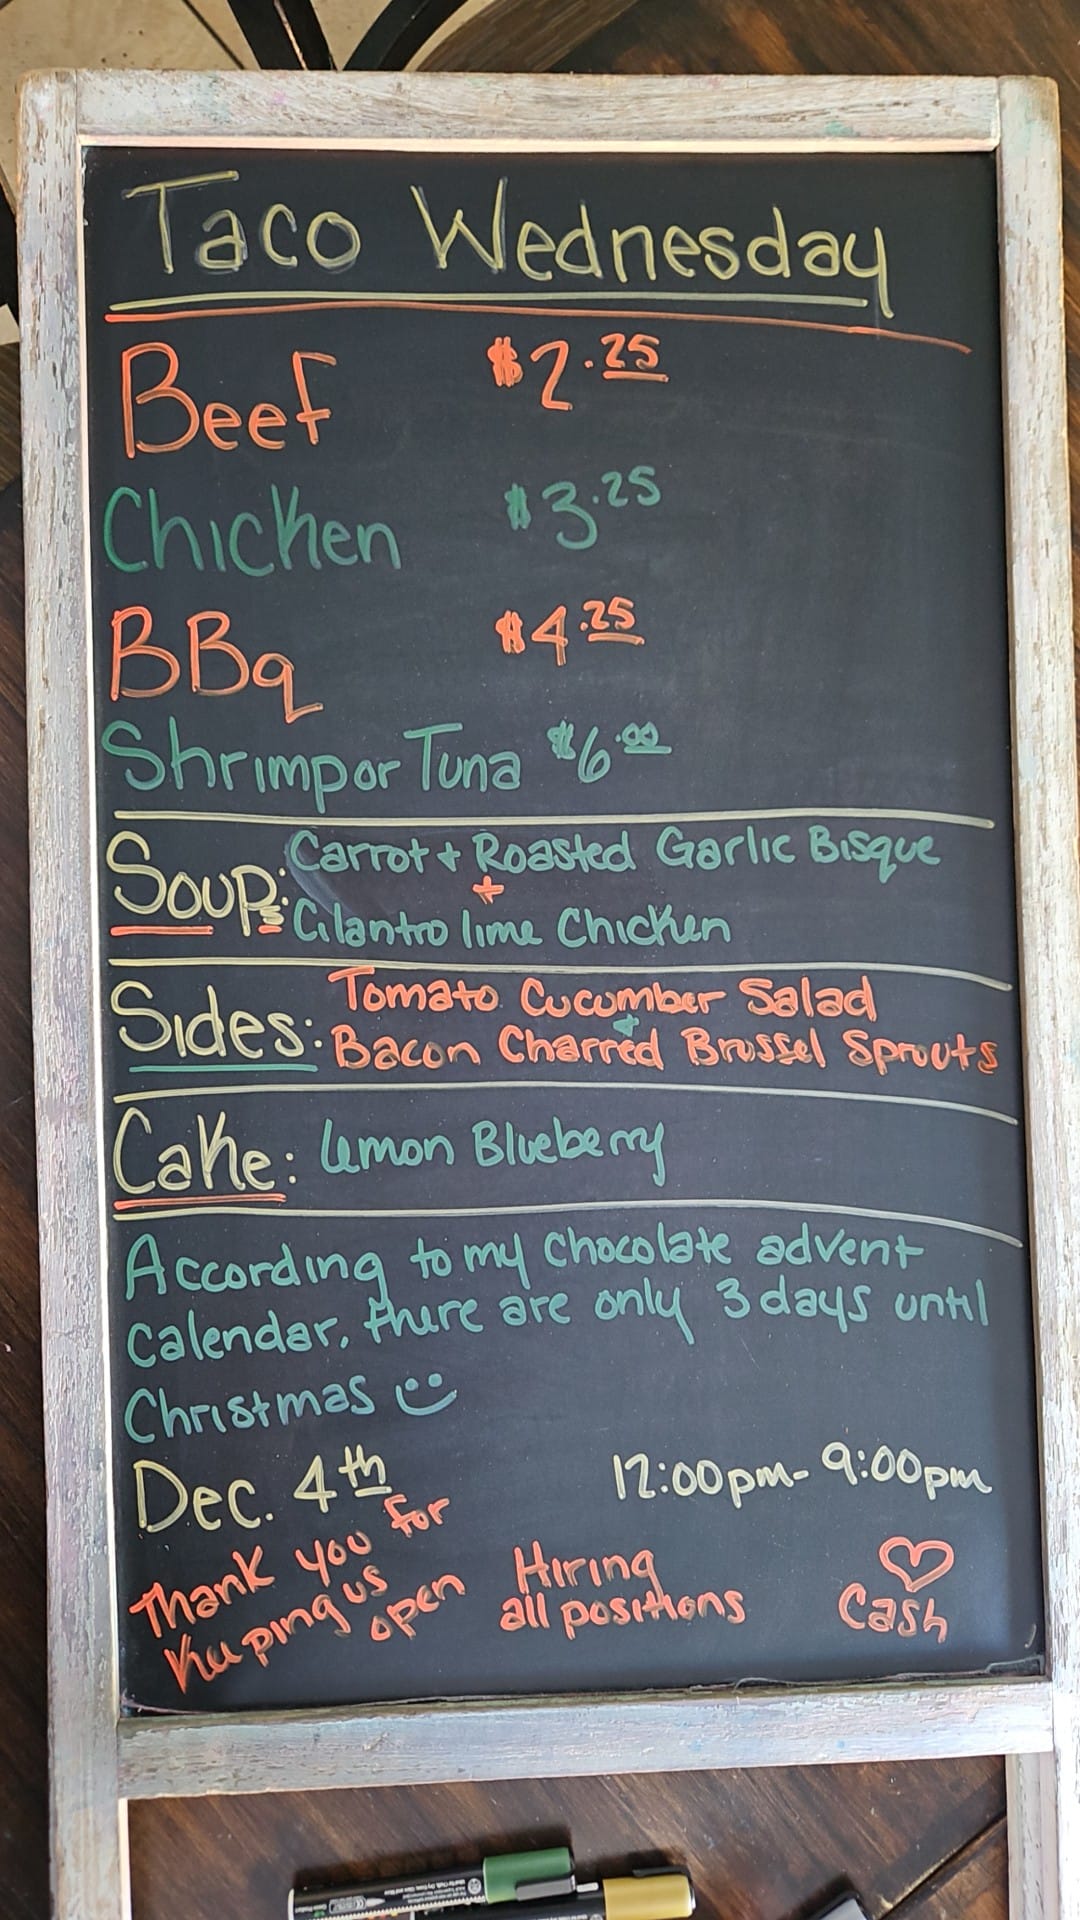 Taco Wednesday
Beef $2.25
Chicken $3.25
BBq $4.25
Shrimp or Tuna $6.00
Soups: Carrot + Roasted Garlic Bisque
+
Cilantro lime Chicken
Sides: Tomato Cucumber Salad
+
Bacon Charred Brussel Sprouts
Cake: Lemon Blueberry
According to my chocolate advent
Calendar, there are only 3 days until
Christmas
Dec. 4th 12:00pm - 9:00pm
Thank you for
Keeping us
open
Hiring
all positions
Cash